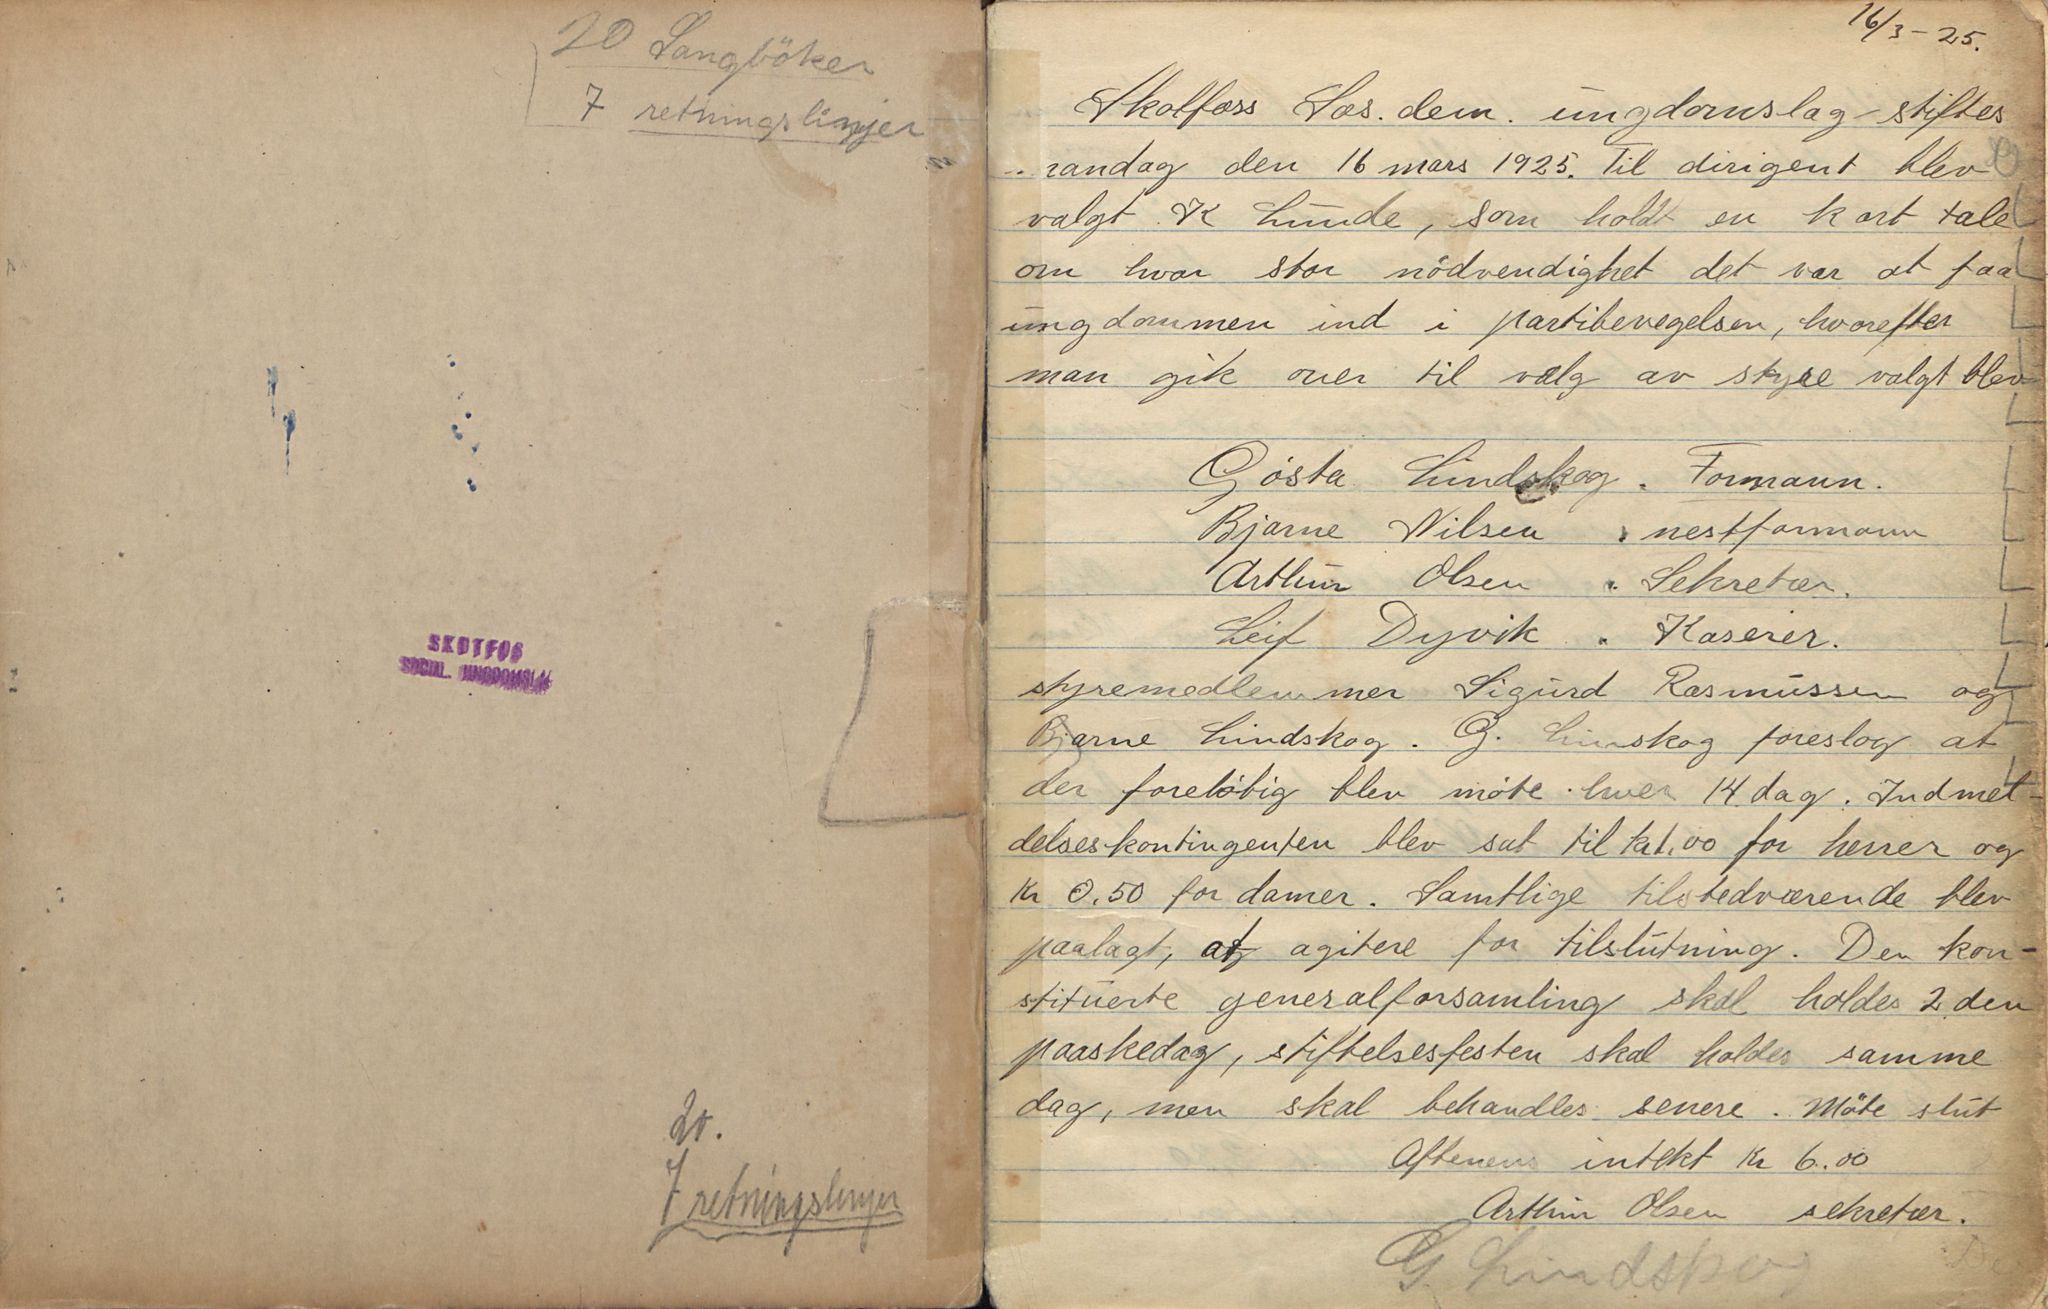 20 Sangböker
7 retningslinjer
SKOTFOS
SOCIAL. UNGDOMSLAG
20.
7 retningslinjer
16/3-25.
Skotfoss Sos. dem. ungdomslag stiftes
mandag den 16 mars 1925. Til dirigent blev
valgt K Lunde, som holdt en kort tale
om hvor stor nödvendighet det var at faa
ungdommen ind i partibevegelsen, hvorefter
man gik over til valg av styre valgt blev
Gösta Lindskog. Formann.
Bjarne Nilsen . nestformann
Arthur Olsen . Sekretær.
Leif Dyvik . Kaserer.
styremedlemmer Sigurd Rasmussen og
Bjarne Lindskog. G. Linskog foreslog at
der forelöbig blev möte hver 14 dag. Indmel-
delseskontingenten blev sat til kr 1.00 for herrer og
Kr 0.50 for damer. Samtlige tilstedværende blev
paalagt, at agitere for tilslutning. Den kon-
stituerte generalforsamling skal holdes 2 den
paaskedag, stiftelsesfesten skal holdes samme
dag, men skal behandles senere. Möte slut
Aftenens intekt Kr 6.00
Arthur Olsen sekretær.
G. Lindskog